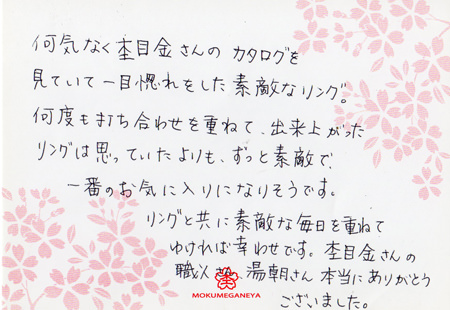 何気なく杢目金さんの カタログを
見ていて一目惚れをした素敵なリング。
何度も打ち合わせを重ねて、出来上がった
リングは思っていたよりも、ずっと素敵で、
一番のお気に入りになりそうです。
リングと共に素敵な毎日を重ねて
ゆければ幸わせです。杢目金さんの
職人さん、湯朝さん 本当にありがとう
ございました。
MOKUMEGANEYA